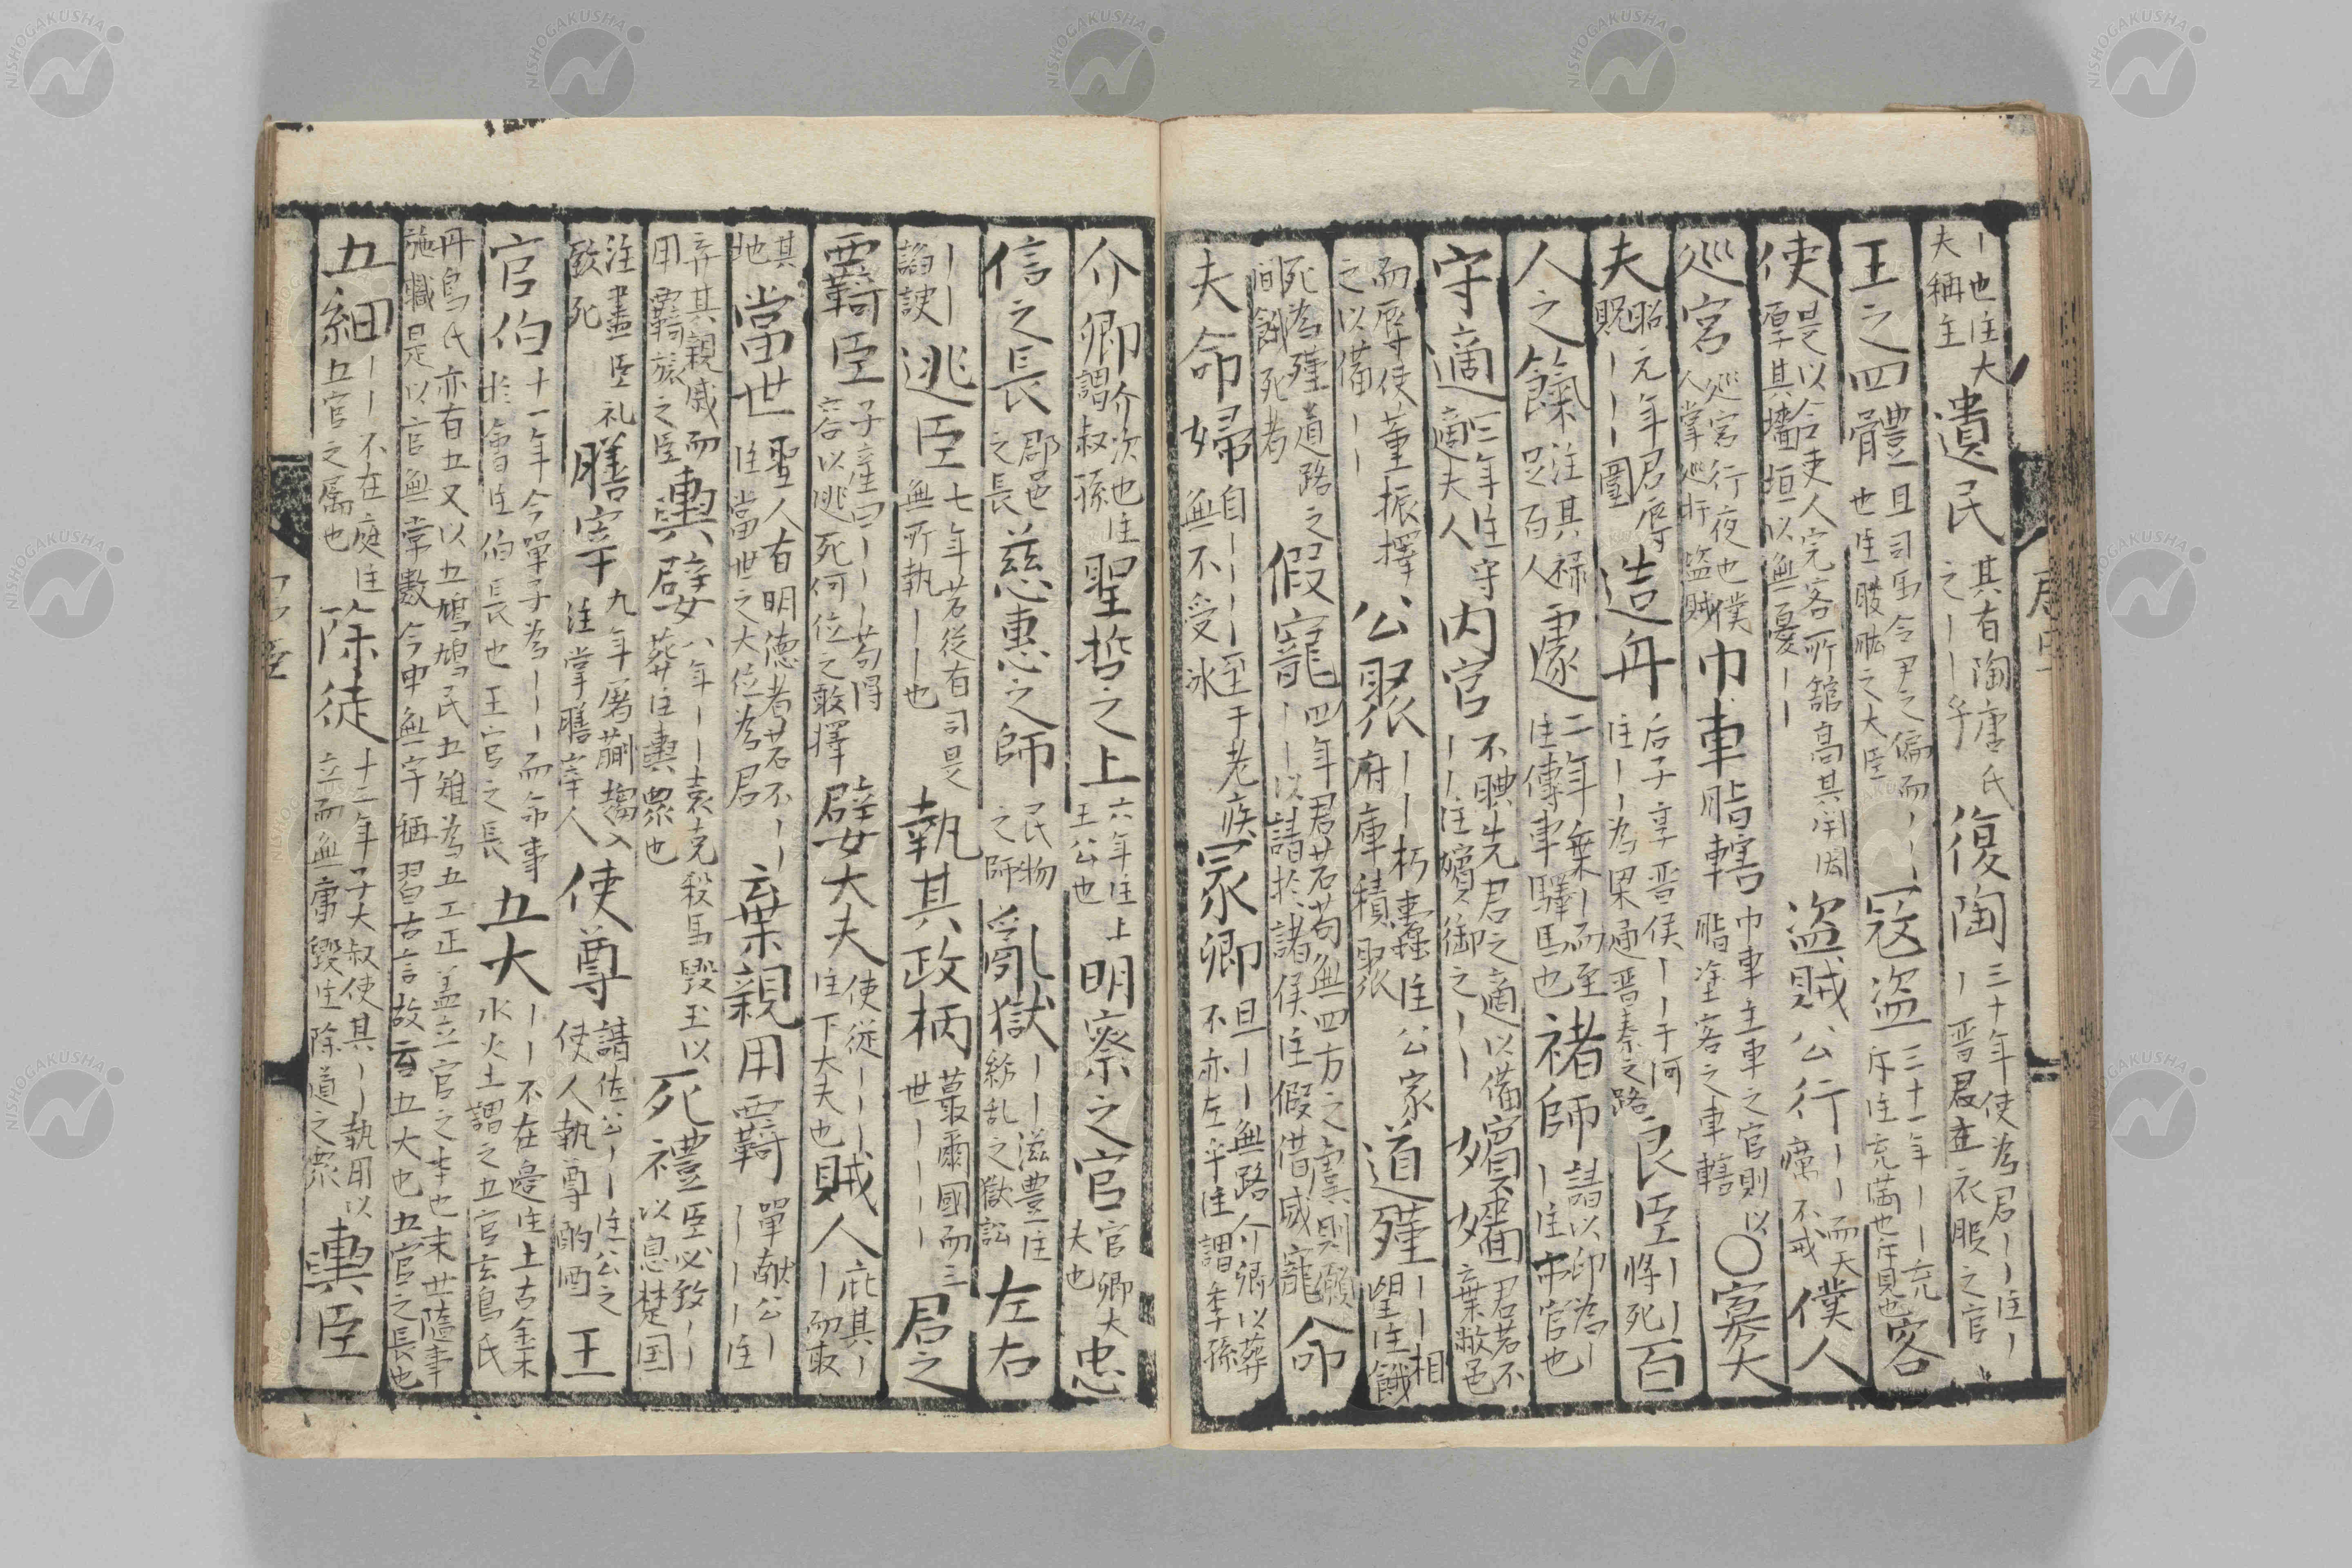 丨也注大
夫稱主
遺民
其有陶唐氏
之丨丨乎
復陶
三十年使為君丨丨注丨
丨晋君主衣服之官
王之四體
且司馬令尹之偏而丨丨丨
也注股肱之大臣
寇盗
三十一年丨丨充
斥注充満也斥見也
客
使
是以令吏人完客所館高其閈閎
厚其墻垣以無憂丨丨
盗賊公行
丨丨丨丨而天
癘不戒
僕人
巡宮
巡宮行夜也僕
人掌巡行盗賊
巾車脂轄
巾車主車之官則以
脂塗客之車轄
〇寡大
夫
昭元年君辱
貺丨丨丨圍
造舟
后子享晋侯丨丨于河
注丨丨為梁通晋秦之路
良臣
丨丨
将死
百
人之餼
注其禄
足百人
遽
二年乗丨而至
注傳車驛馬也
褚師
請以印為丨
丨注市官也
守適
二年注守
適夫人
内官
不腆先君之適以備
丨丨注嬪御之丨丨
嬪嬙
君若不
棄敝邑
而辱使董振擇
之以備丨丨
公聚
丨丨朽蠹注公家
府庫積聚
道殣
丨丨相
望注餓
死為殣道路之
間餓死者
假寵
四年君若苟無四方之虞則願
丨丨以請於諸侯注假借威寵
命
夫命婦
自丨丨丨丨至于老疾
無不受冰
冢卿
且丨丨無路介卿以葬
不亦左乎注謂季孫
介卿
介次也注
謂叔孫
聖哲之上
六年注上
王公也
明察之官
官卿大
夫也
忠
信之長
郡邑
之長
慈惠之師
民物
之師
乱獄
丨丨滋豊注
紛乱之獄訟
左右
丨丨
諂諛
逃臣
七年若従有司是
無所執丨丨也
執其政柄
蕞爾國而三
世丨丨丨丨
君之
羇臣
子産曰丨丨丨苟得
容以逃死何位之敢擇
嬖大夫
使従丨丨丨
注下大夫也
賊人
庇其丨
丨而取
其
地
當世
聖人有明徳者若不丨丨
注當世之大位為君
棄親用羇
單献公丨
丨丨丨丨注
弃其親戚而
用羇旅之臣
輿嬖
八年丨丨袁克殺馬毀玉以
葬注輿衆也
死禮
臣必致丨丨
以息楚国
注盡臣礼
致死
膳宰
九年屠蒯趨入
注掌膳宰人
使尊
請佐公丨丨注公之
使人執尊酌酒
王
官伯
十一年今單子為丨丨丨而命事
於會注伯長也王官之長
五大
丨丨不在邊注上古金木
水火土謂之五官玄鳥氏
丹鳥氏亦有五又以五鳩鳩民五雉為五工正盖立官之本也末世隨事
施職是以官無常數今申無宇稱習古言故云五大也五官之長也
五細
丨丨不在庭注
五官之属也
除徒
十二年子大叔使其丨丨執用以
立而無庸毀注除道之衆
輿臣